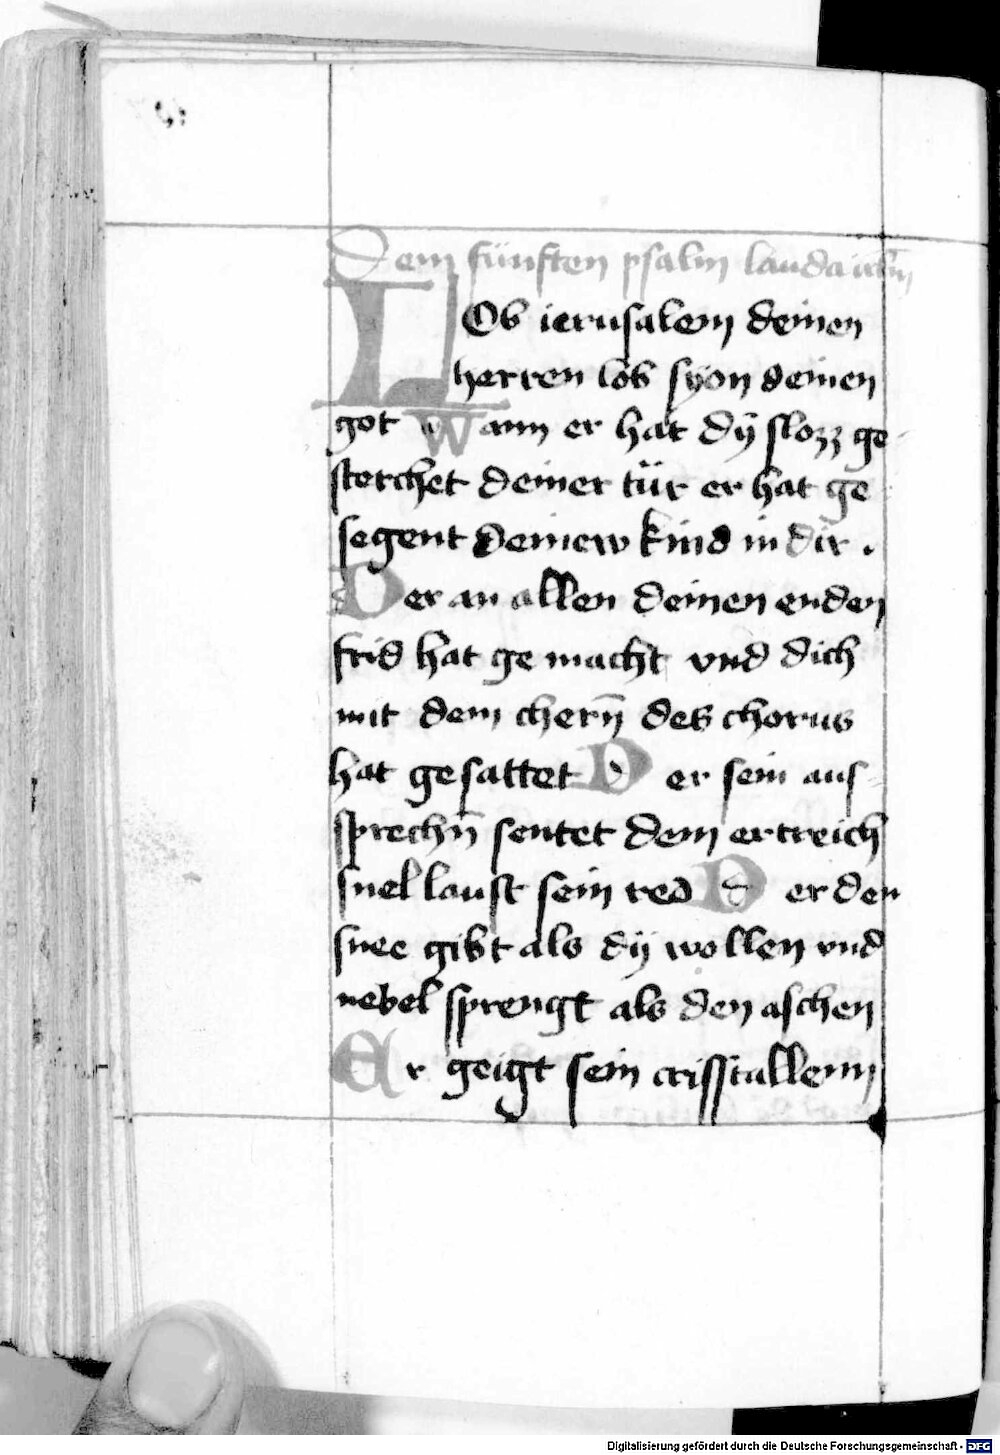 Dem fünften psalm lauda
LOb ierusalem deinen
herren lob syon deinen
got Wann er hat dÿ slozz ge
sterchet deiner tür er hat ge
segent deinew kind in dir .
Der an allen deinen enden
frid hat ge macht vnd dich
mit dem chern̄ des chorns
hat gesattet Der sein aus
sprechn̄ sentet dem ertreich
snel laust sein red Der den
snee gibt als dÿ wollen vnd
nebel sprengt als den aschen
Er geigt sein cristallenn
Digitalisierung gefördert durch die Deutsche Forschungsgemeinschaft - DFG